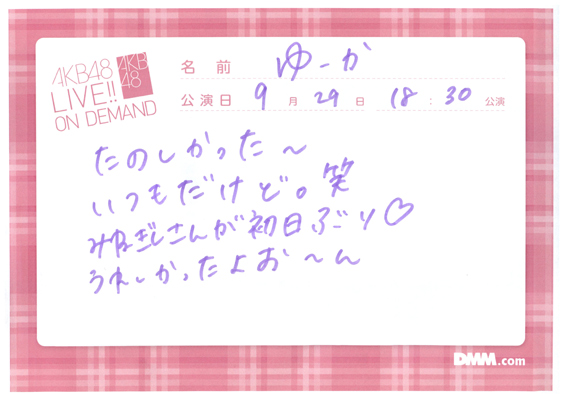 AKB48
LIVE!!
ON DEMAND
AKB
48
名前 ゆーか
公演日 9月29日 18:30公演
たのしかった〜
いつもだけど。笑
みねぎしさんが初日ぶり♡
うれしかったよお〜ん
DMM.com